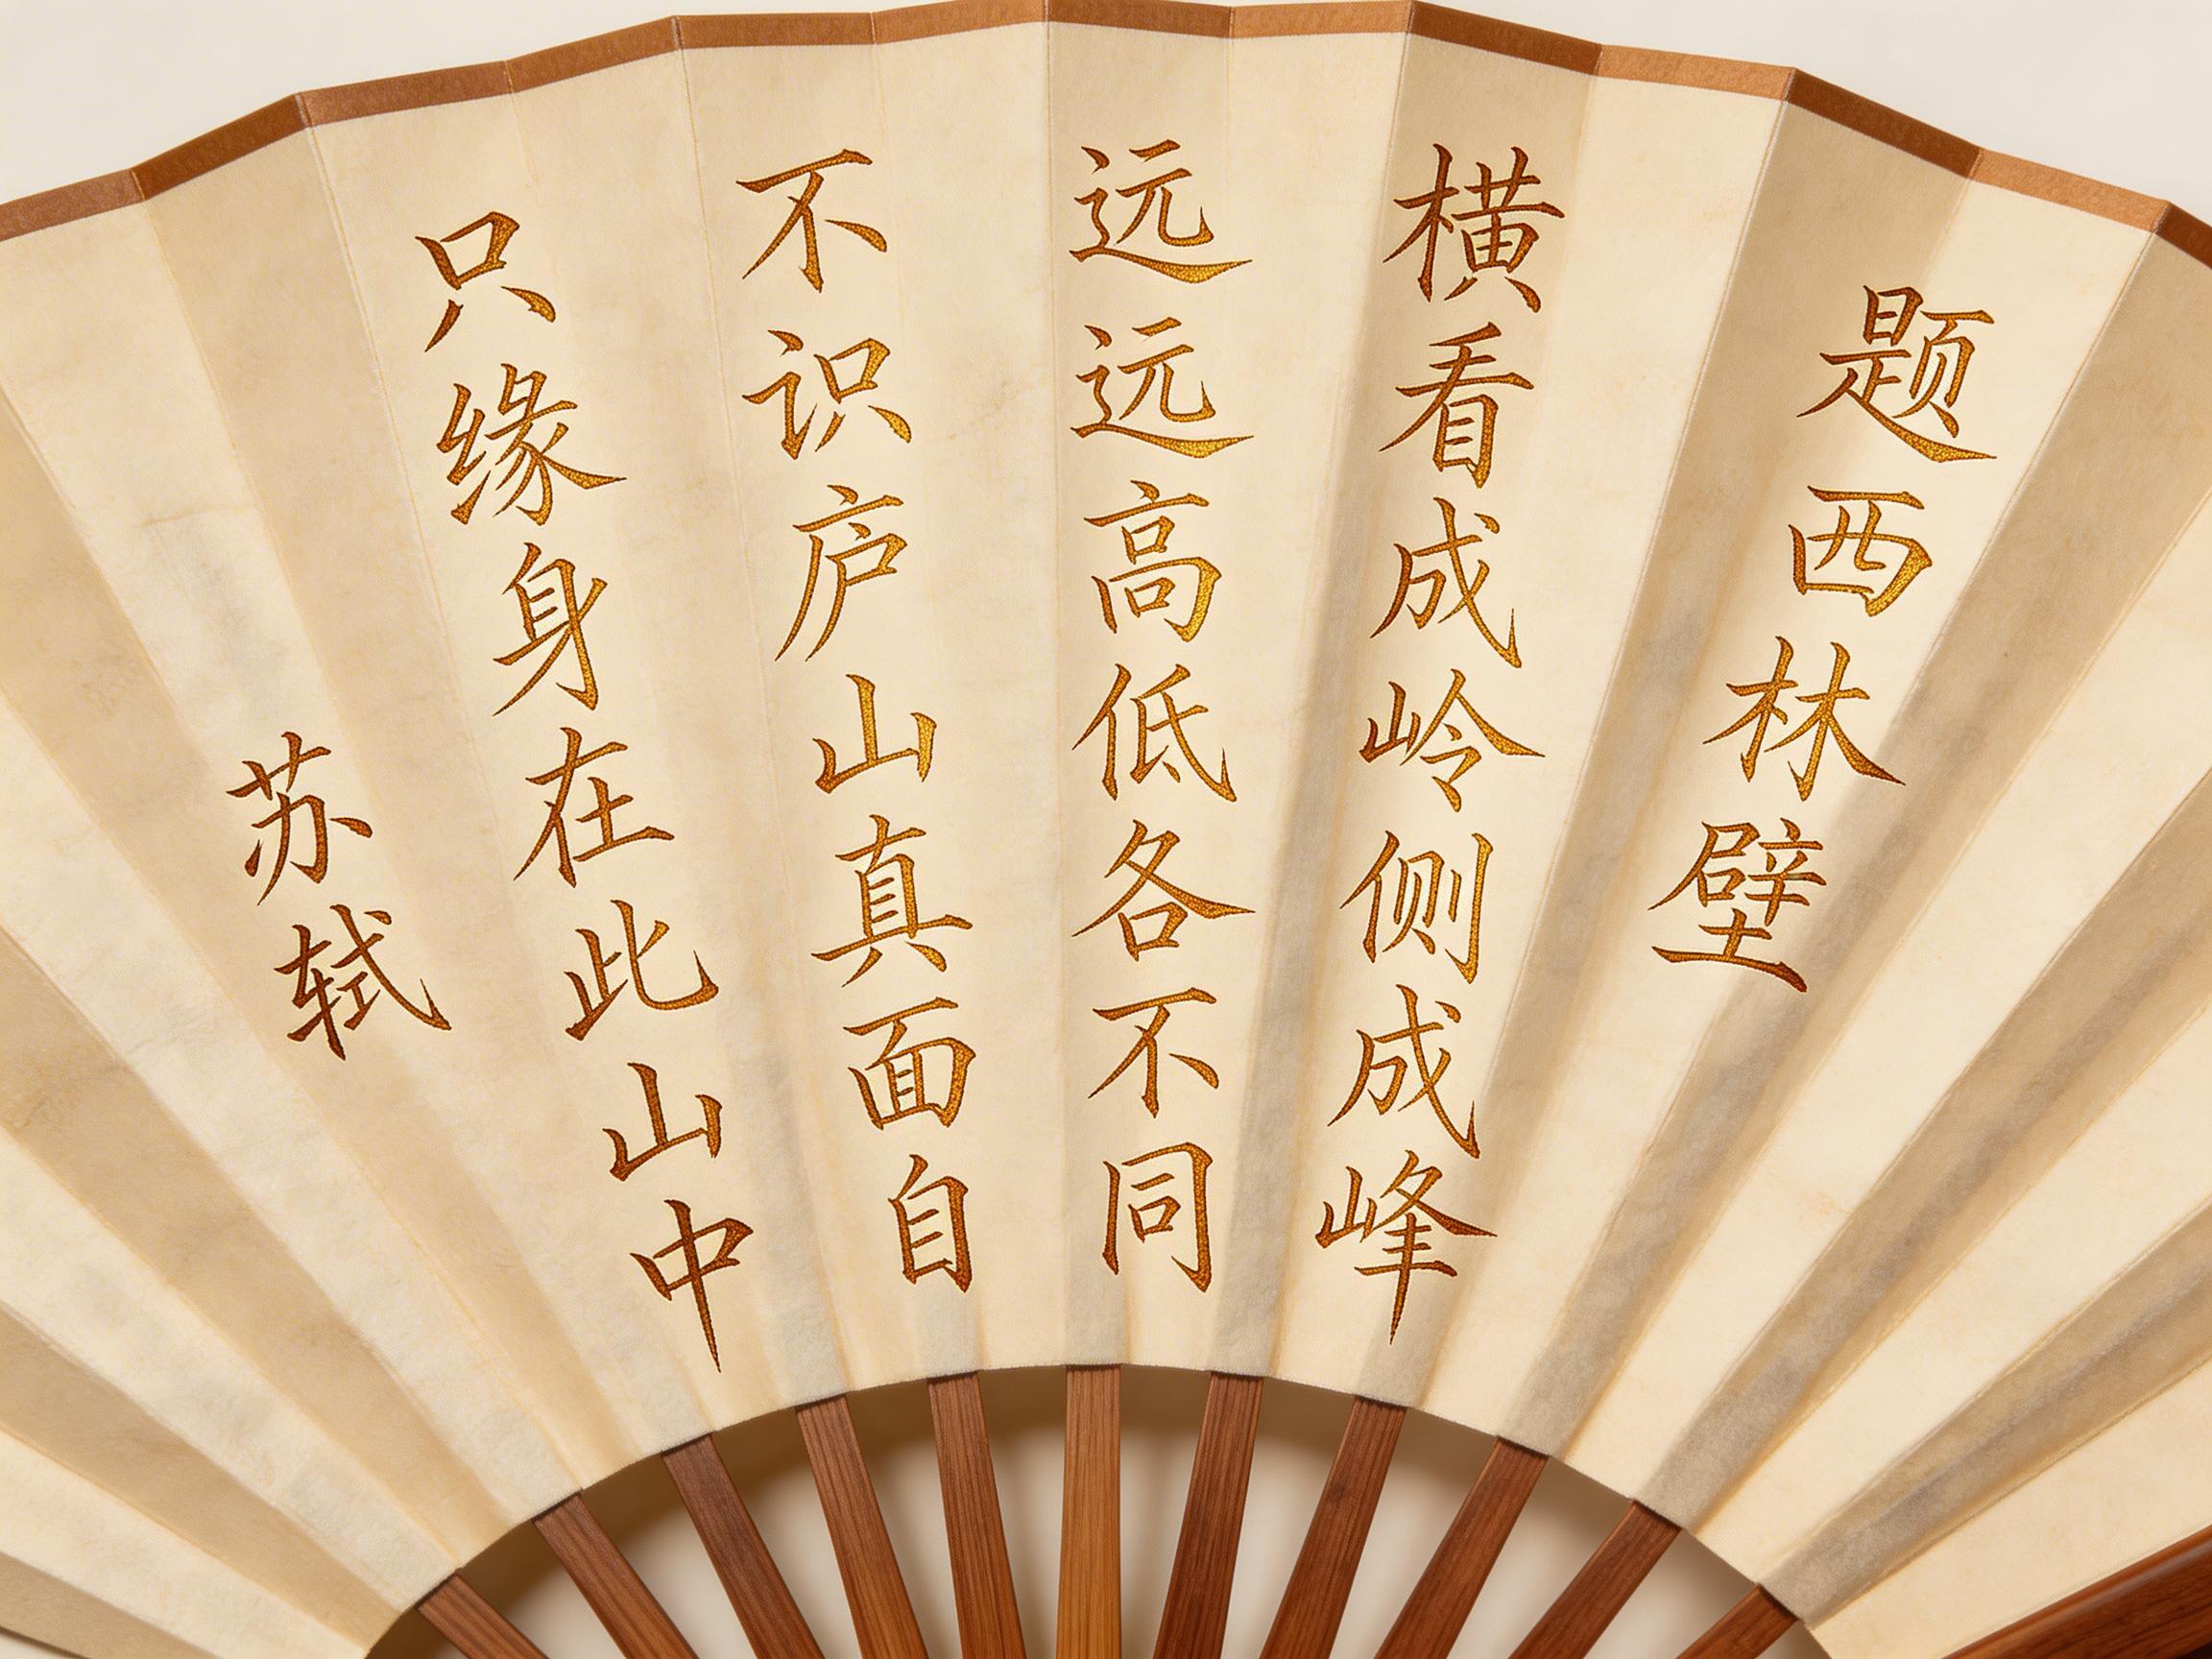 题西林壁
横看成岭侧成峰
远远高低各不同
不识庐山真面自
只缘身在此山中
苏轼